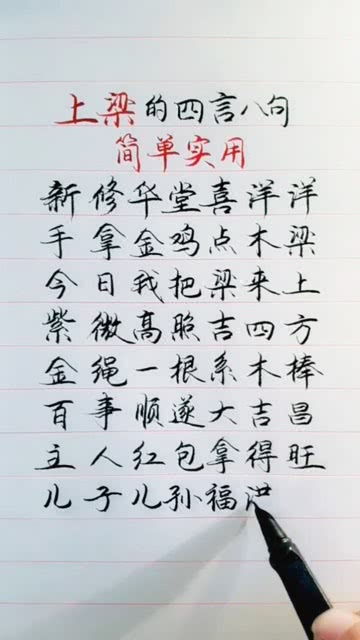 上梁的四言八句
简单实用
新修华堂喜洋洋
手拿金鸡点木梁
今日我把梁来上
紫微高照吉四方
金绳一根系木棒
百事顺遂大吉昌
主人红包拿得旺
儿子儿孙福